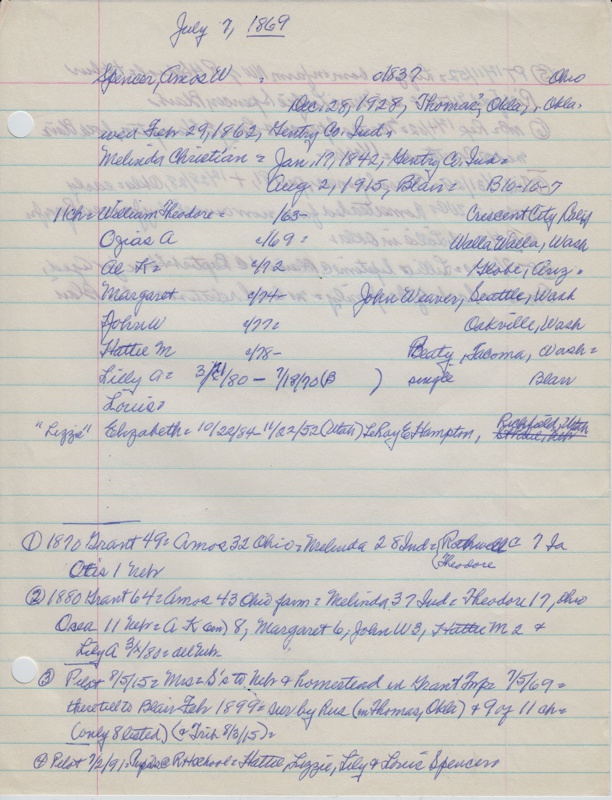 July 7, 1869
Spencer, Amos W. c1837 Ohio
Dec. 28, 1928, Thomas, Okla., Okla.
wed Feb 29, 1862, Gentry Co. Ind.
Melinda Christian = Jan. 17, 1842, Gentry Co. Ind =
Aug. 2, 1915, Blair = B10-10-7
11ch = William Theodore = /63- Crescent City, Calif
Ozias A c/69 = Walla Walla, Wash
Al K = c/72 Globe, Ariz =
Margaret c/74- John Weaver, Seattle, Wash
John W c/77 = Oakville, Wash
Hattie M c/78- Beaty, Tacoma, Wash =
Lilly A = 3/ /80 - 7/18/70 (B ) single Blair
Louis =
"Lizzie" Elizabeth = 10/22/84 - 11/22/52 (Utah) LeRoy E Hampton, Richfield, Utah
① 1870 Grant 49 = Amos 32 Ohio = Melinda 28 Ind = (Rothwell C 7 Ia
(Theodore
Otis 1 Nebr
② 1880 Grant 64 = Amos 43 Ohio farm = Melinda 37 Ind = Theodore 17, Ohio
Osea 11 Nebr = A-K (son) 8, Margaret 6, John W 3, Hattie M 2 &
Lily A 3/12/80 = all Nebr
③ Pilot 8/5/15 = Mrs = S's to Nebr & homestead in Grant Twp = 7/5/69 =
there til to Blair Feb 1899 = surv by Hus (in Thomas, Okla) & 9 of 11 ch =
(only 8 listed) (& Trib 8/3/15) =
④ Pilot 7/2/91 = Pupils @ R H school = Hattie, Lizzie, Lily & Louis Spencer